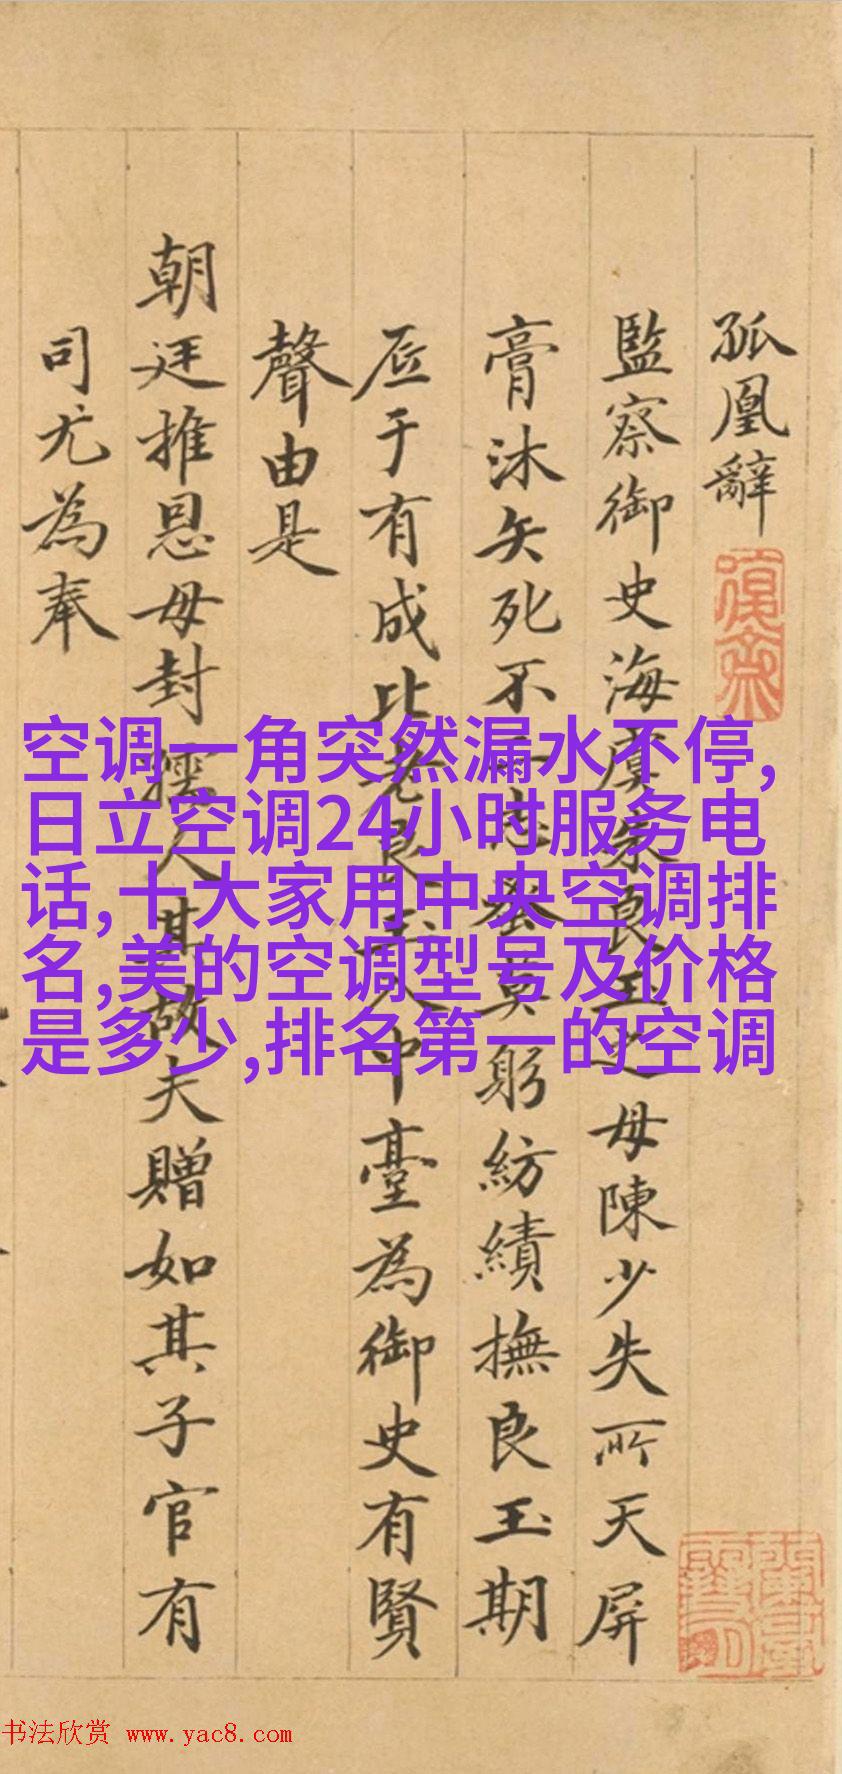 孤凰辭
監察御史海虞朱良玉之母陳少失所天屏
膏沐矢死不二志蚤莫躬紡績撫良玉期
底于有成比老良玉入中臺為御史有賢
聲由是
朝廷推恩母封孺人其故夫贈如其子官有
司尤為奉
空调一角突然漏水不停,
日立空调24小时服务电
话,十大家用中央空调排
名,美的空调型号及价格
是多少,排名第一的空调
书法欣赏 www.yac8.com